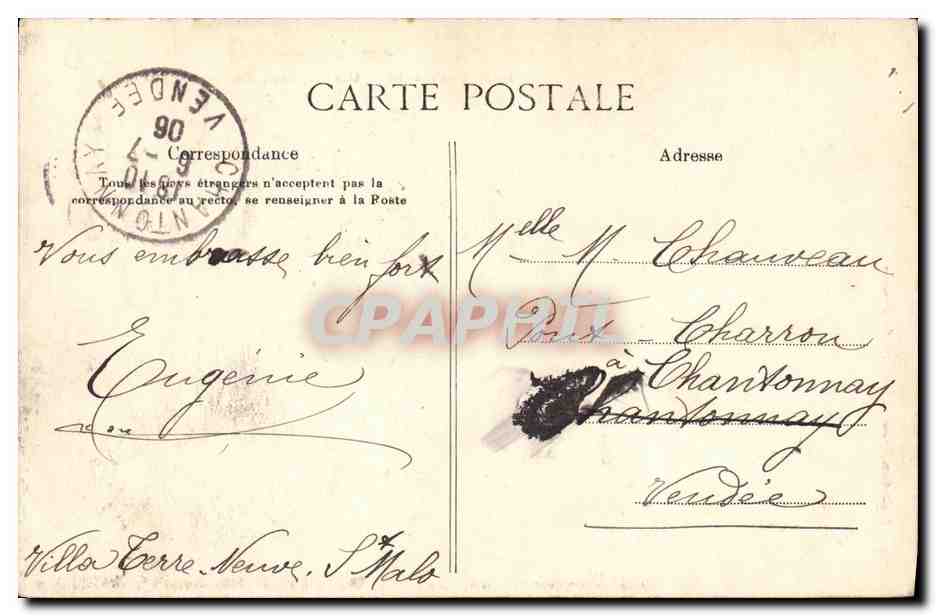 CARTE POSTALE
Correspondance
Tous les pays étrangers n'acceptent pas la
correspondance au recto, se renseigner à la Poste
Adresse
CHANTONNAY
VENDÉE
18 10
6 - 7
06
Vous embrasse bien fort
Eugénie
Villa Terre-Neuve. St Malo
Melle M. Chauveau
Pont-Charron
à Chantonnay
Chantonnay
Vendée
CPAPHIL